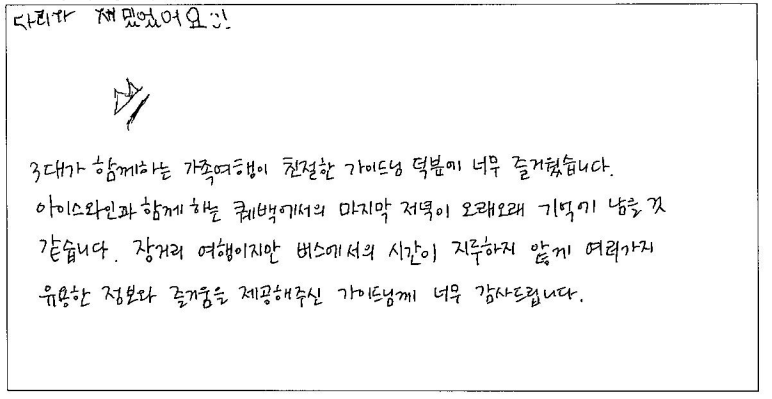 다리가 재밌었어요::!
3대가 함께하는 가족여행이 친절한 가이드님 덕분에 너무 즐거웠습니다.
아이스와인과 함께 하는 퀘백에서의 마지막 저녁이 오래오래 기억에 남을 것
같습니다. 장거리 여행이지만 버스에서의 시간이 지루하지 않게 여러가지
유용한 정보와 즐거움을 제공해주신 가이드님께 너무 감사드립니다.